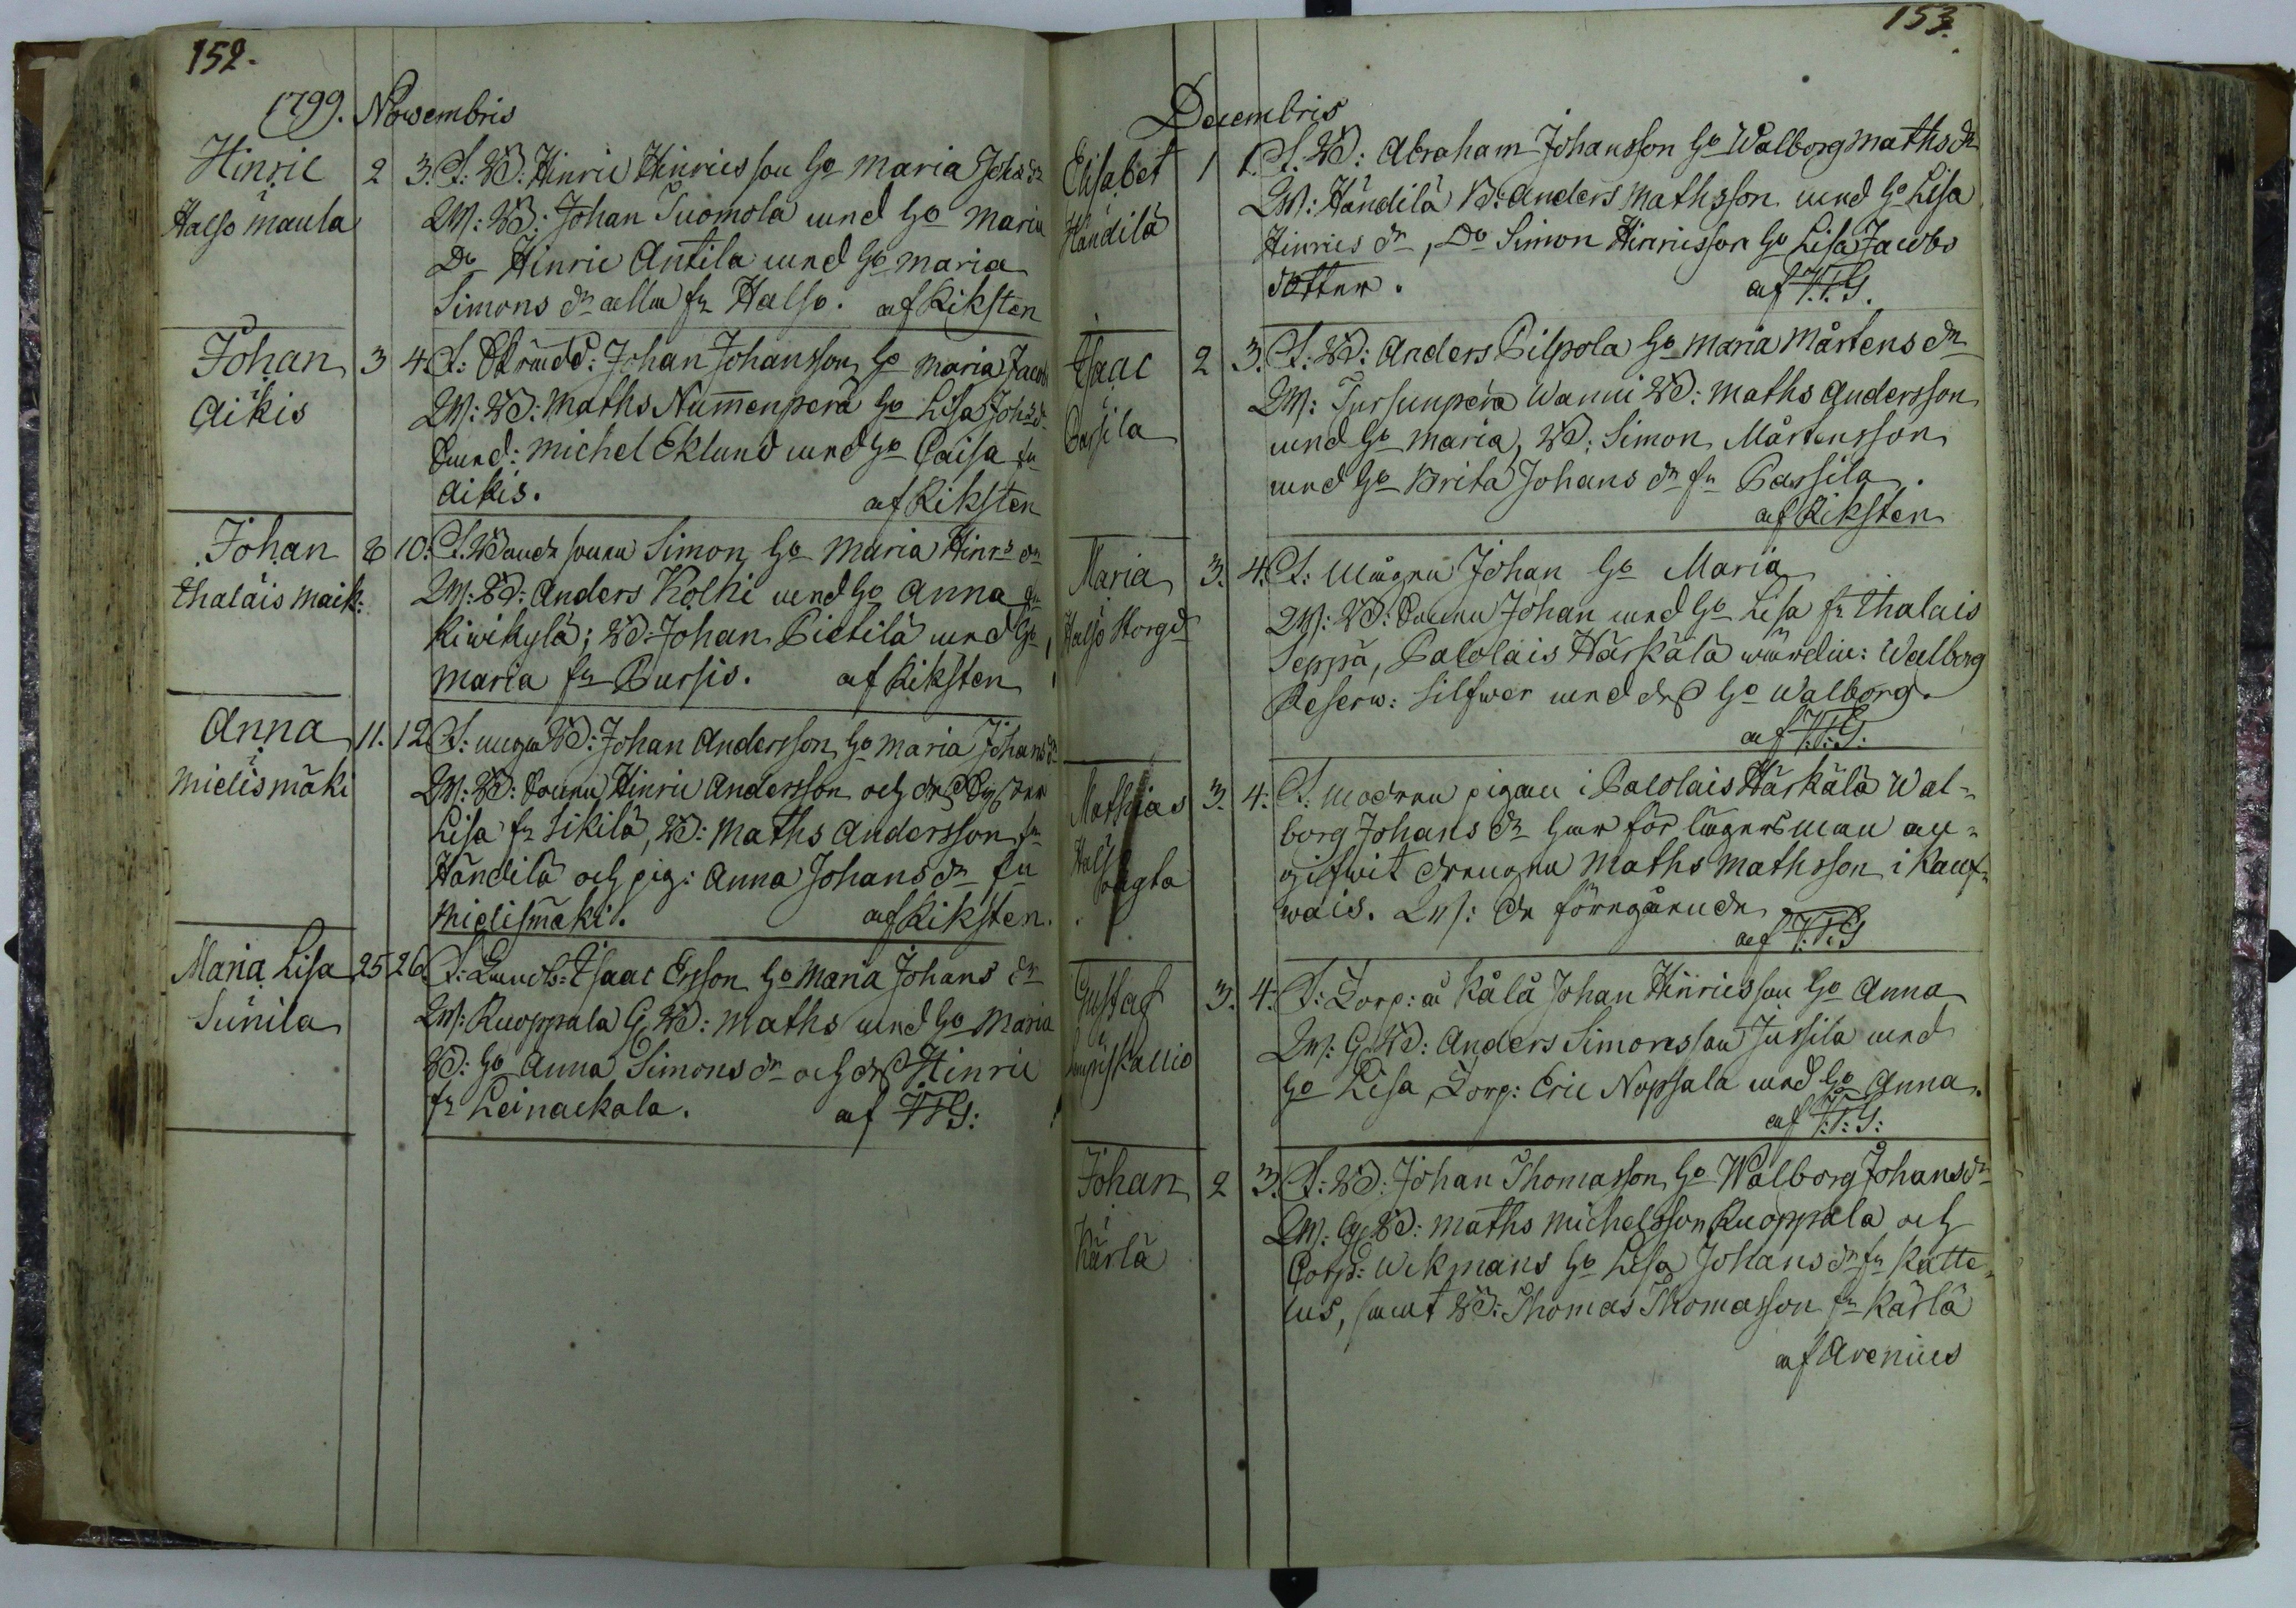 152.
1799. Novembris
Hinric
i
Halso Maula
2 3. F: B: Hinric Hinricsson ho Maria Johs dr
W: B: Johan Tuomola med ho Maria
Do Hinric Antila med ho Maria
Simons dr alla fr Halso. af Riksten
Johan
i
Aikis
3 4. F: Johan Johansson ho Maria Jacobs
W: B: Maths Nummenperä ho Lisa Johs d
Michel Eklund med ho Caisa fr
Aikis. af Riksten
Johan
Thalais Maik:
8 10. F. Simon ho Maria Hinrs dr
W: B: Anders Kolki med ho Anna fr
Kiwikylä; B: Johan Pietilä med ho
Maria fr Pursis. af Riksten
Anna
i
Mielismäki
11. 12 F: unga B: Johan Andersson ho Maria Johans dr
W: B: Sonen Hinric Andersson och
Lisa fr Sikilä, B: Maths Andersson fr
Händilä och pig: Anna Johans dr fr
Mielismäki. af Riksten.
Maria Lisa
Sunila
25 26. F: Isaac Ersson ho Maria Johans dr
W: Kuoppala B: Maths med ho Maria
B: ho Anna Simons dr och Hinric
fr Leinackala. af
153.
Decembris
Elisabet
Händilä
1 1. F. B: Abraham Johansson ho Walborg Maths dr
W: Händilä B: Anders Mathsson med ho Lisa
Hinrics dr, Do Simon Hinricsson ho Lisa Jacobs
dotter. af
Isaac
i
Passila
2 3. F: B: Anders Pilpola ho Maria Mårtens dr
W: B: Maths Andersson
med ho Maria, B: Simon Mårtensson
med ho Brita Johans dr fr Passila.
af Riksten
Maria
Halso Korgd
3. 4. F: Mågen Johan ho Maria
W: B: Sonen Johan med ho Lisa fr Thalais
Seppä, Palolais Härkälä wärdin: Walborg
Reserw: Silfwer med ho Walborg.
af
Mathias
Hals
3. 4: F. Modren pigan i Palolais Härkälä Wal-
borg Johans dr har för lägersman an-
gifwit drengen Maths Mathsson i Kauf-
wais. W: De föregående
af
Gustaf
3. 4: F: Torp: å Kålå Johan Hinricsson ho Anna
W: B: Anders Simonsson Jussila med
ho Lisa Torp: Eric Nopsala med ho Anna.
af
Johan
i
Kärlä
2 3. F: B: Johan Thomasson ho Walborg Johans dr
W: B: Maths Michelsson Kuoppala och
Corp: Wekmans ho Lisa Johans dr fr Katte-
lus, samt B: Thomas Thomasson fr Kärlä
af Arenius